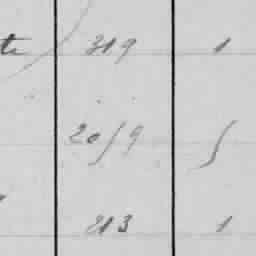 te 319 1
20/9 /
213 1